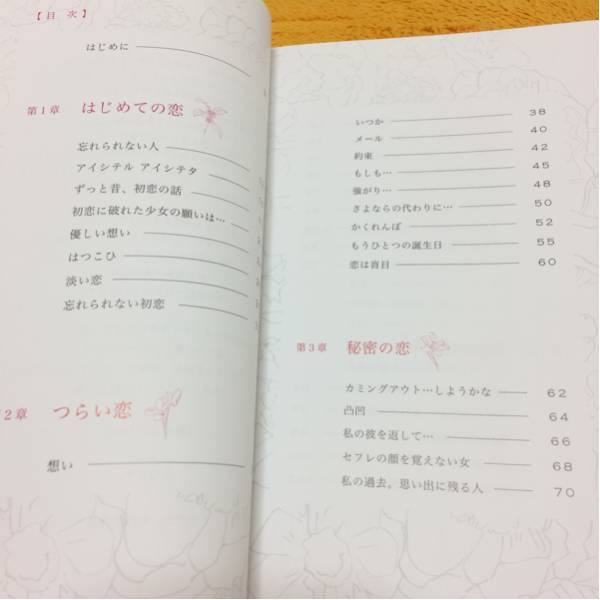 【目 次】
はじめに
第1章 はじめての恋
忘れられない人
アイシテル アイシテタ
ずっと昔、初恋の話
初恋に破れた少女の願いは…
優しい想い
はつこひ
淡い恋
忘れられない初恋
2章 つらい恋
想い
いつか 38
メール 40
約束 42
もしも… 45
強がり… 48
さよならの代わりに… 50
かくれんぼ 52
もうひとつの誕生日 55
恋は盲目 60
第3章 秘密の恋
カミングアウト…しようかな 62
凸凹 64
私の彼を返して… 66
セフレの顔を覚えない女 68
私の過去。思い出に残る人 70